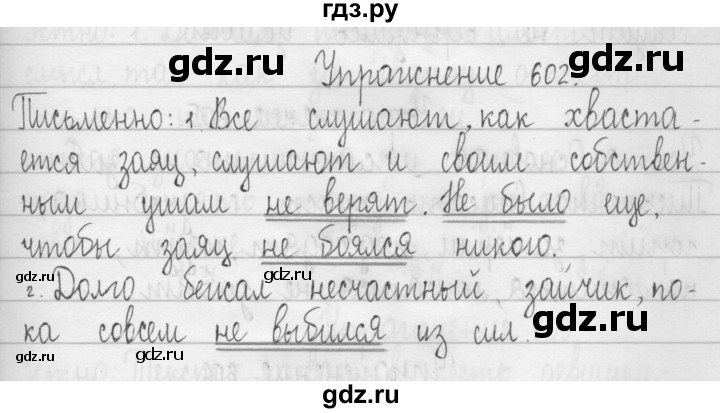 гдз.ру
gdz.ru gdz.ru
Упражнение 602.
Письменно: 1. Все слушают, как хваста-
ется заяц, слушают и своим собствен-
ным ушам не верят. Не было еще,
чтобы заяц не боялся никого.
gdz.ru gdz.ru gdz.ru
2. Долго бегал несчастный зайчик, по-
ка совсем не выбился из сил.
gdz.ru gdz.ru
gdz.ru